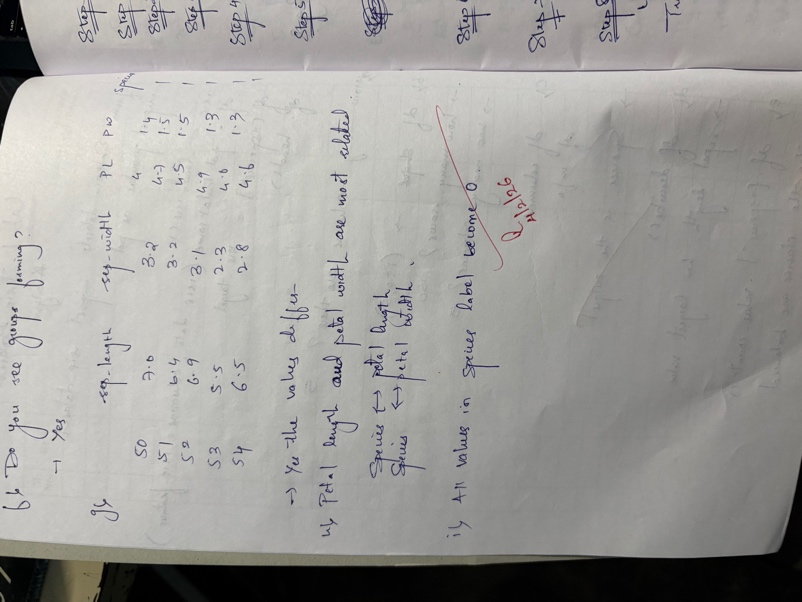 f) Do you see groups forming?
→ Yes
g)
sep-length sep-width PL PW Species
50 7.0 3.2 4 1.4 1
51 6.4 3.2 4.7 1.5 1
52 6.9 3.1 4.5 1.5 1
53 5.5 2.3 4.9 1.3 1
54 6.5 2.8 4.0 1.3 1
4.6
→ Yes the values differ
h) Petal length and petal width are most related
Species ↔ petal length
Species ↔ petal width.
i) All values in Species label become 0
Step
Step
Step
Step
Step 4
Step 5
Step
Step
Step